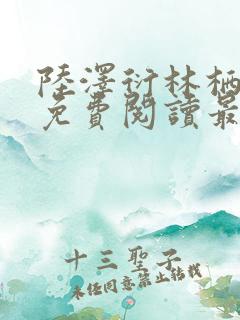 陸澤衍林栖
免費閱讀最
十三聖子
未經同意禁止轉載